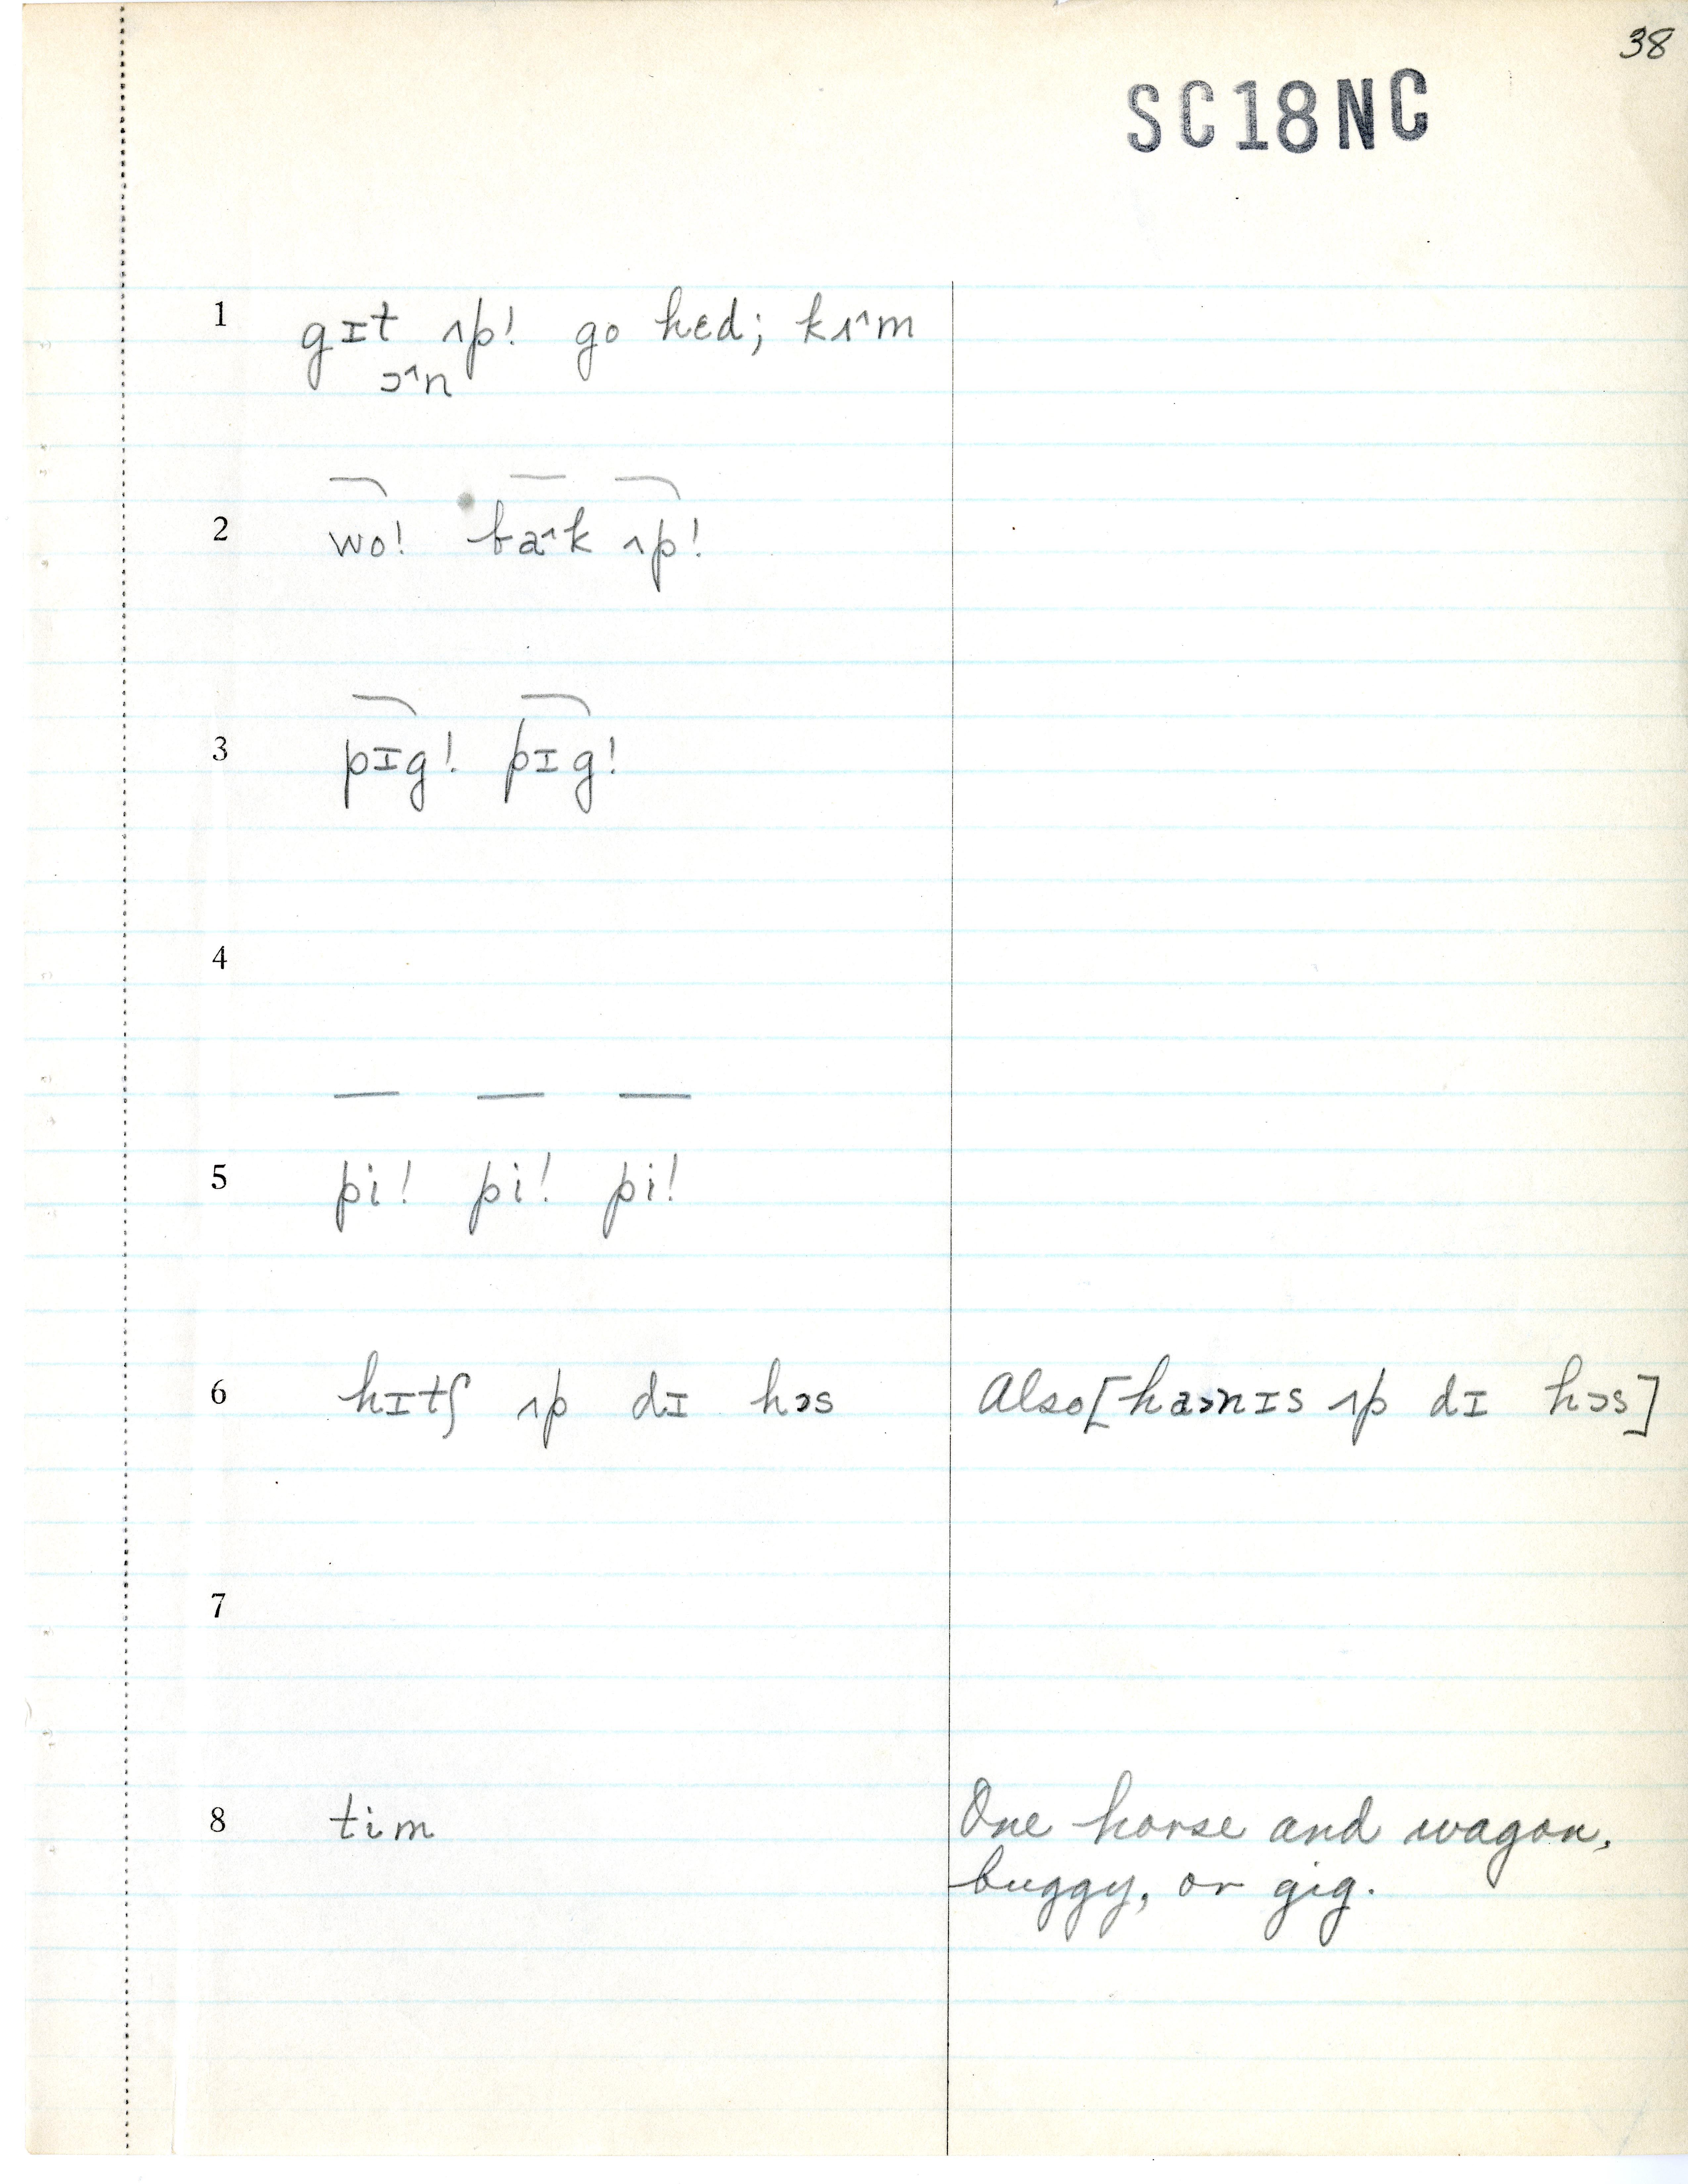 38
SC18NC
1 gɪt ʌp! go hɛd; kʌ˄m
ɔ˄n
2 wo! ba˄k ʌp!
3 pɪg! pɪg!
4
5 pi! pi! pi!
6 hɪtʃ ʌp dɪ hɔs Also [ha˃nɪs ʌp dɪ hɔs]
7
8 tim One horse and wagon,
buggy, or gig.